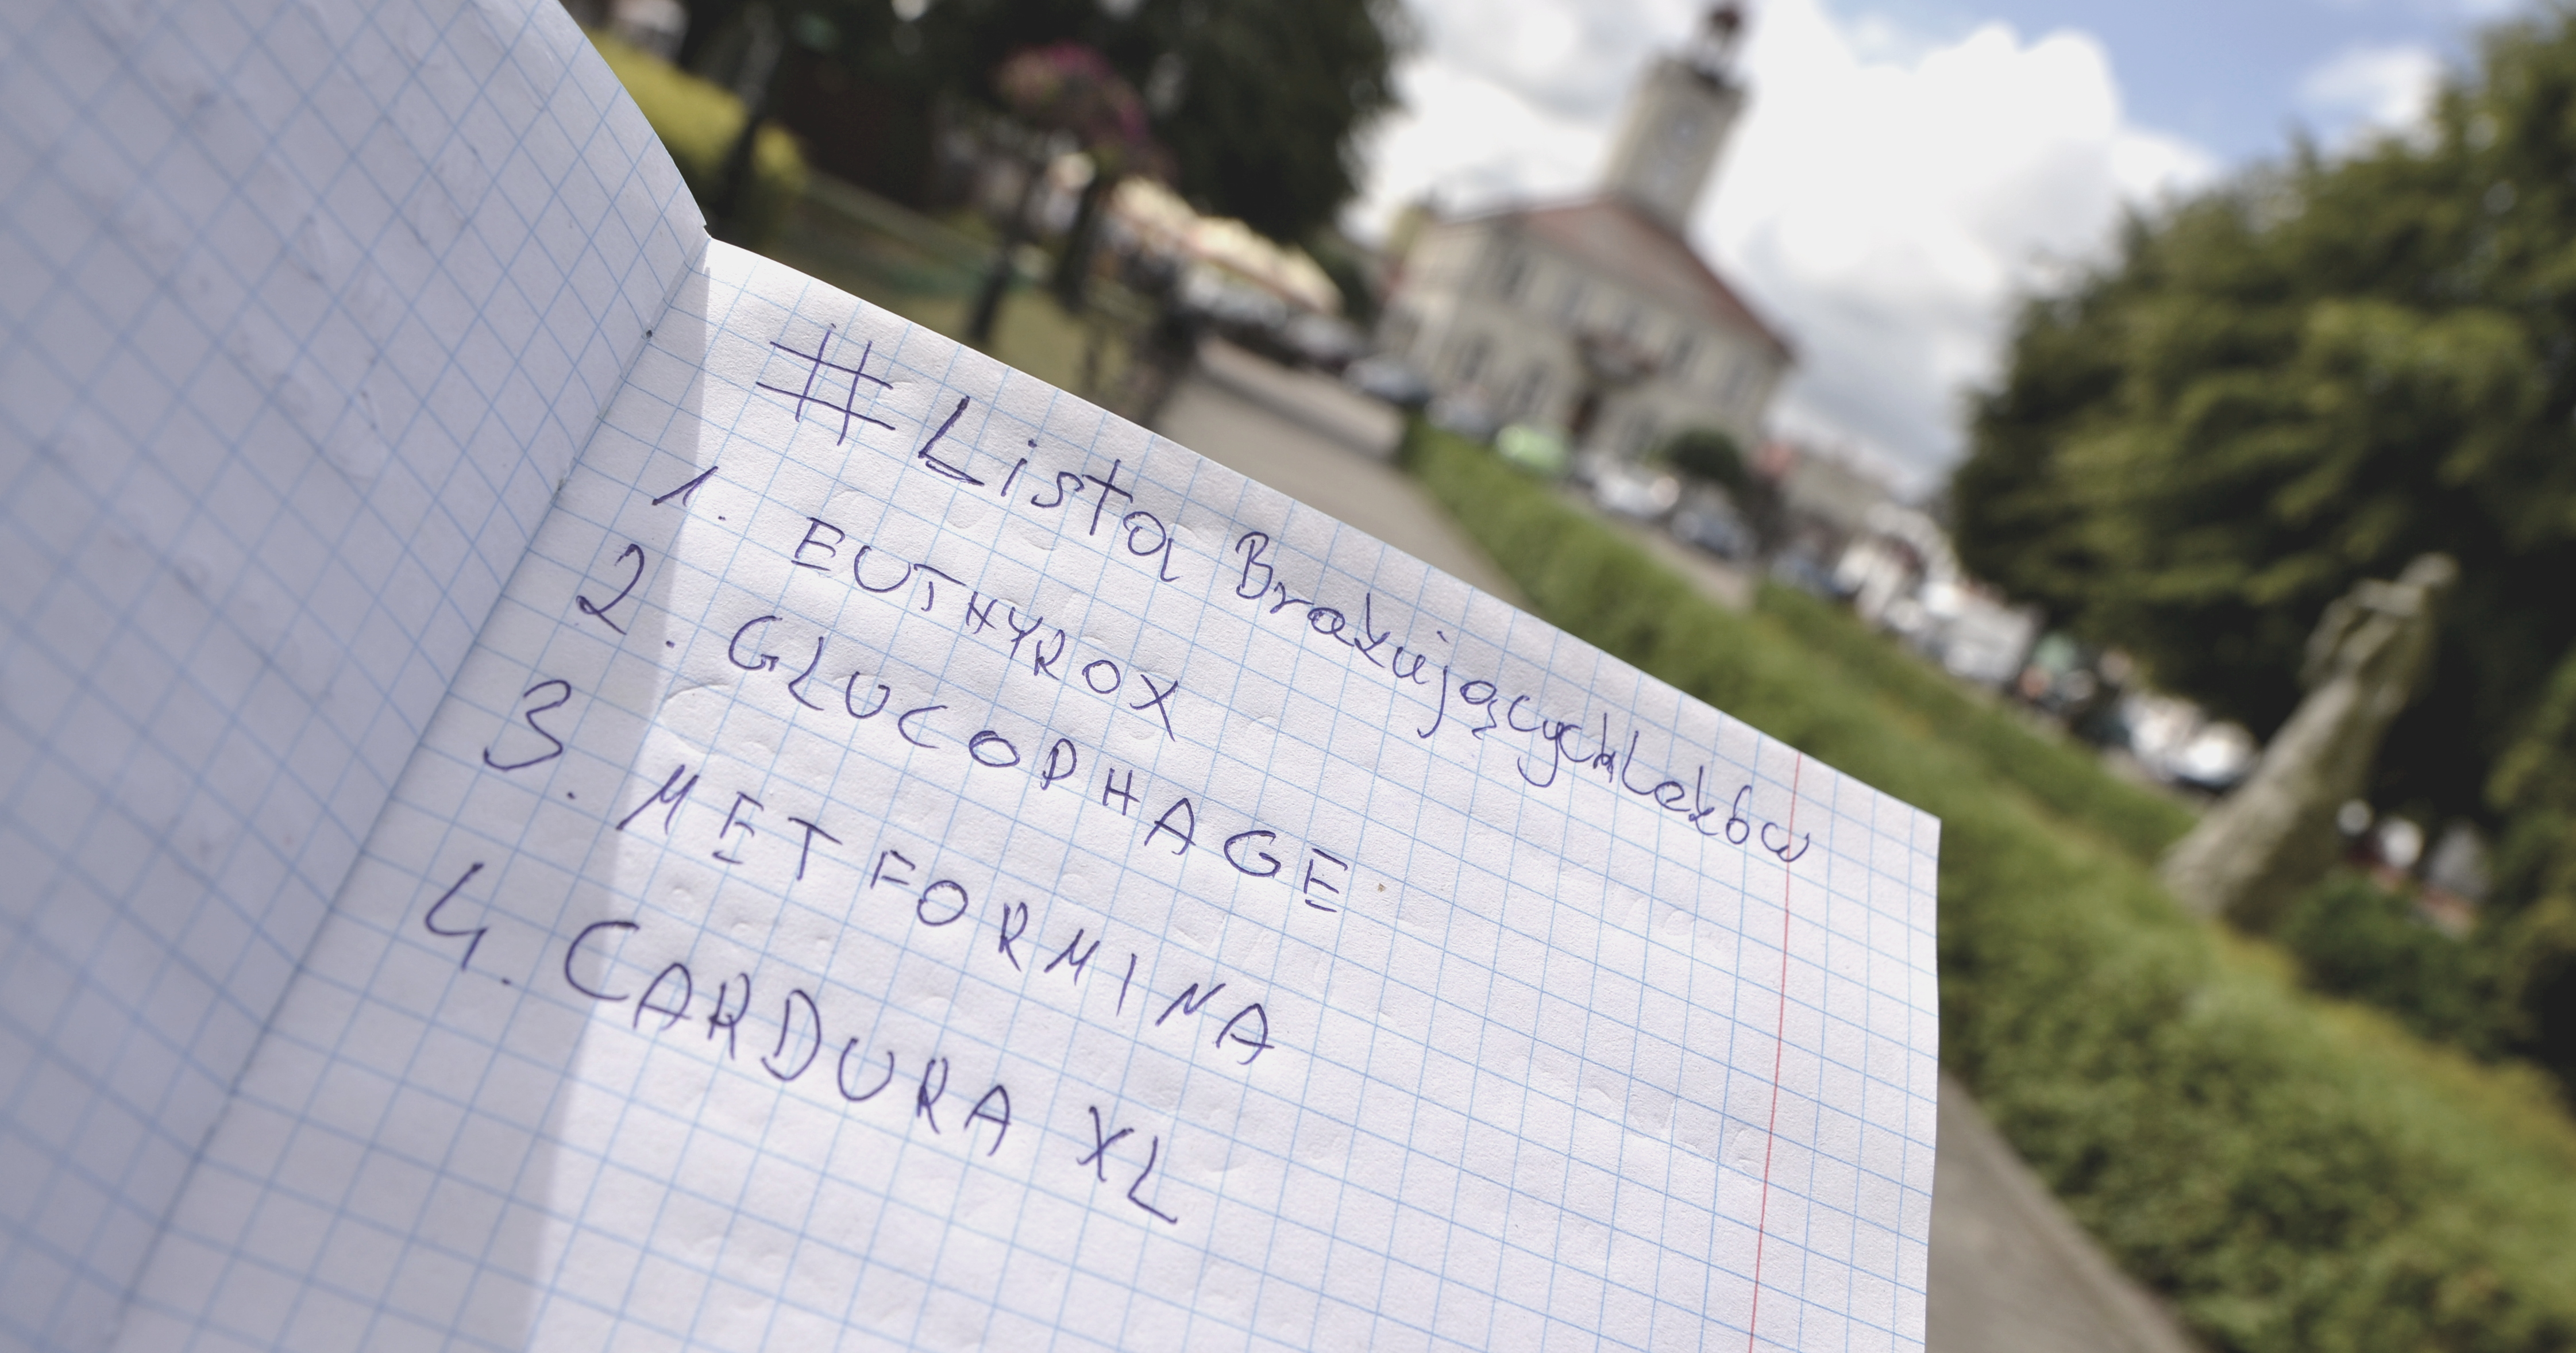 #Lista Brakującychleków
1. EUTHYROX
2. GLUCOPHAGE
3. METFORMINA
4. CARDURA XL